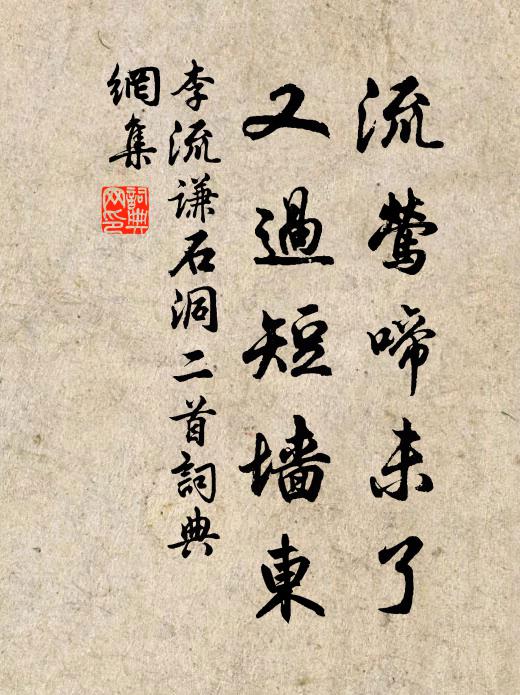 流莺啼未了
又過短墙東
李流谦石洞二首詞典
網集
詞典
网印